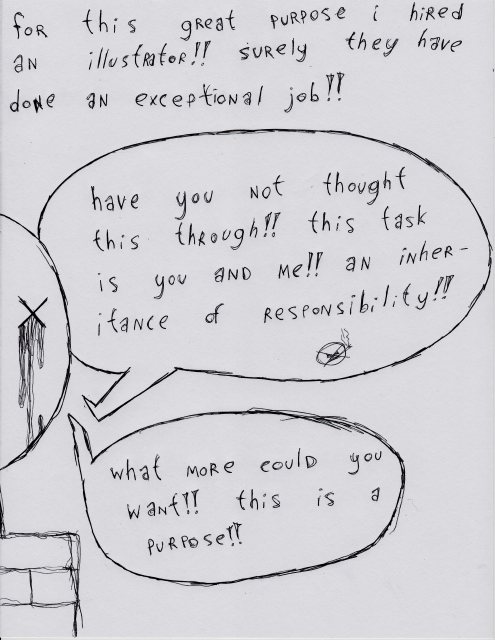 for this great purpose i hired
an illustrator!! surely they have
done an exceptional job!!
have you not thought
this through!! this task
is you and me!! an inher-
itance of responsibility!!
what more could you
want!! this is a
purpose!!